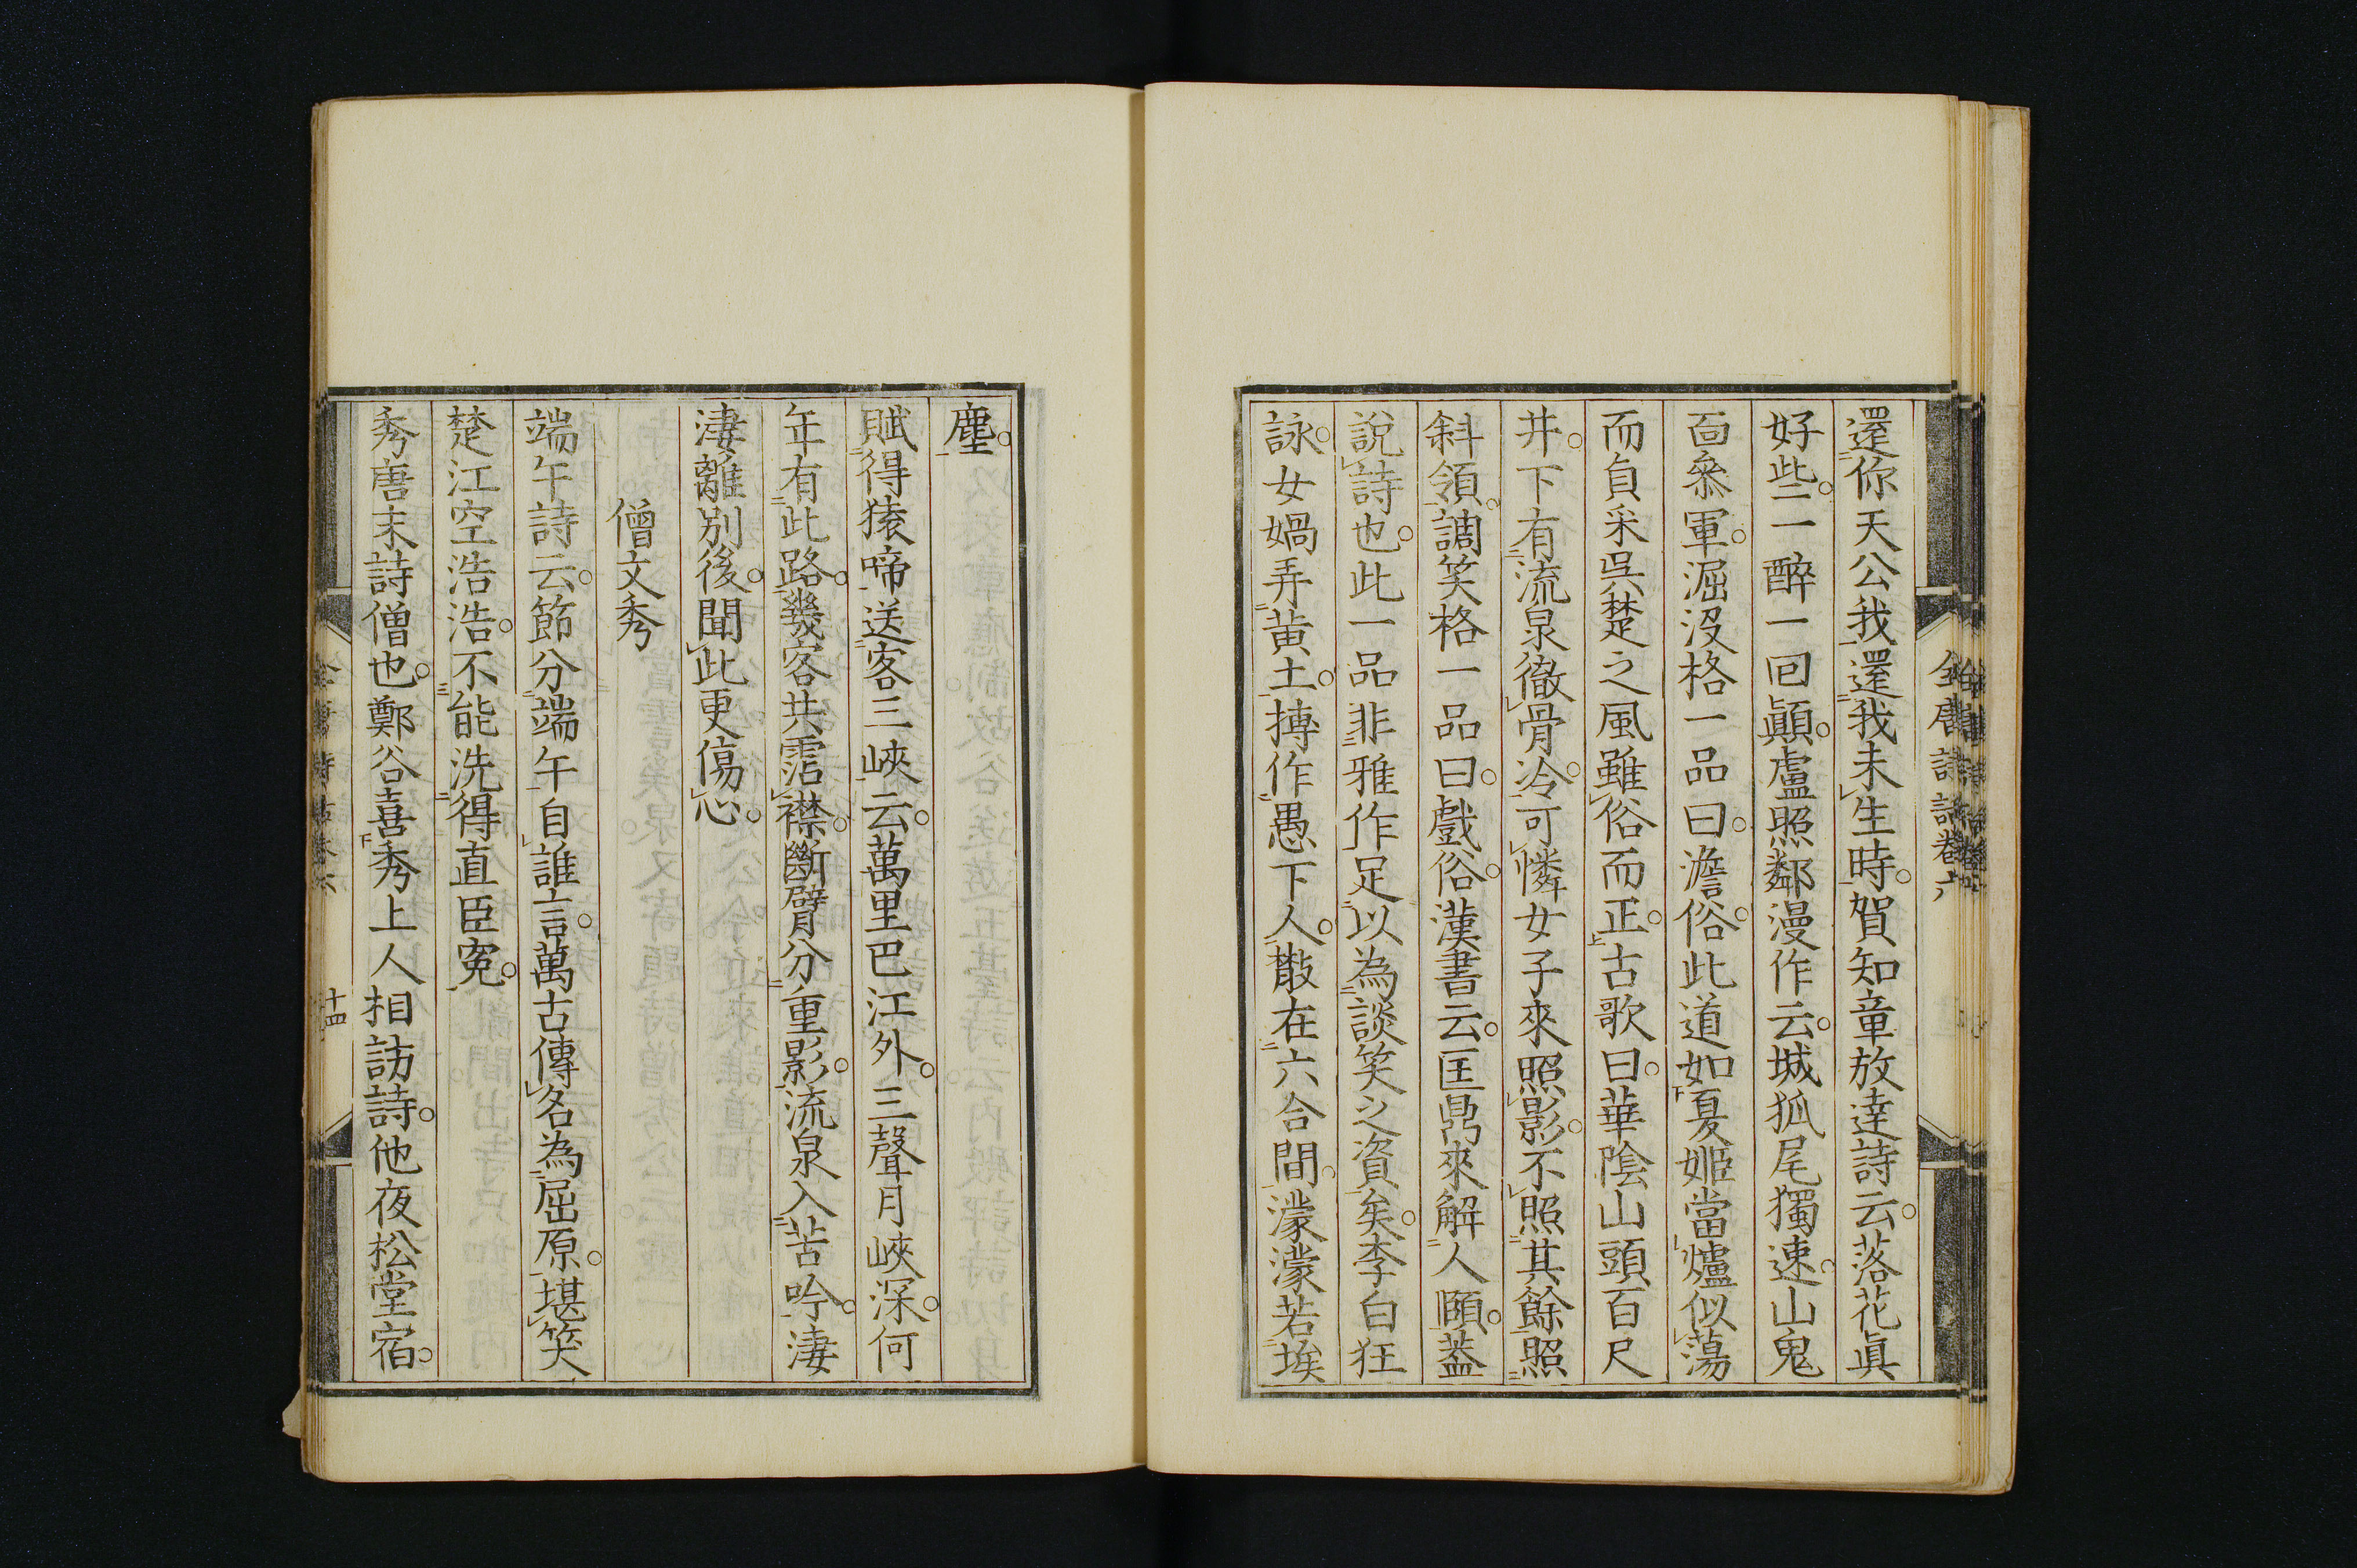 還你天公我還我未生時。賀知章放達詩云。落花眞
好些。一醉一回顚。盧照鄰漫作云。城狐尾獨速。山鬼
面叅軍。淈沒格一品曰。澹俗。此道如夏姬當爐似蕩
而貞采吳楚之風雖俗而正。古歌曰。華陰山頭百尺
井。下有流泉徹骨冷。可憐女子來照影。不照其餘照
斜領。調笑格一品曰。戲俗。漢書云。匡鼎來解人頤。蓋
說詩也。此一品非雅作足以為談笑之資矣。李白狂
詠。女媧弄黃土。摶作愚下人。散在六合間。濛濛若埃
全唐詩話卷六
塵。
賦得猿啼送客三峽云。萬里巴江外。三聲月峽深。何
年有此路。幾客共霑襟。斷臂分重影。流泉入苦吟。淒
淒離別後。聞此更傷心。
僧文秀
端午詩云。節分端午自誰言。萬古傳名為屈原。堪笑
楚江空浩浩。不能洗得直臣寃。
秀唐末詩僧也。鄭谷喜秀上人相訪詩。他夜松堂宿。
十四